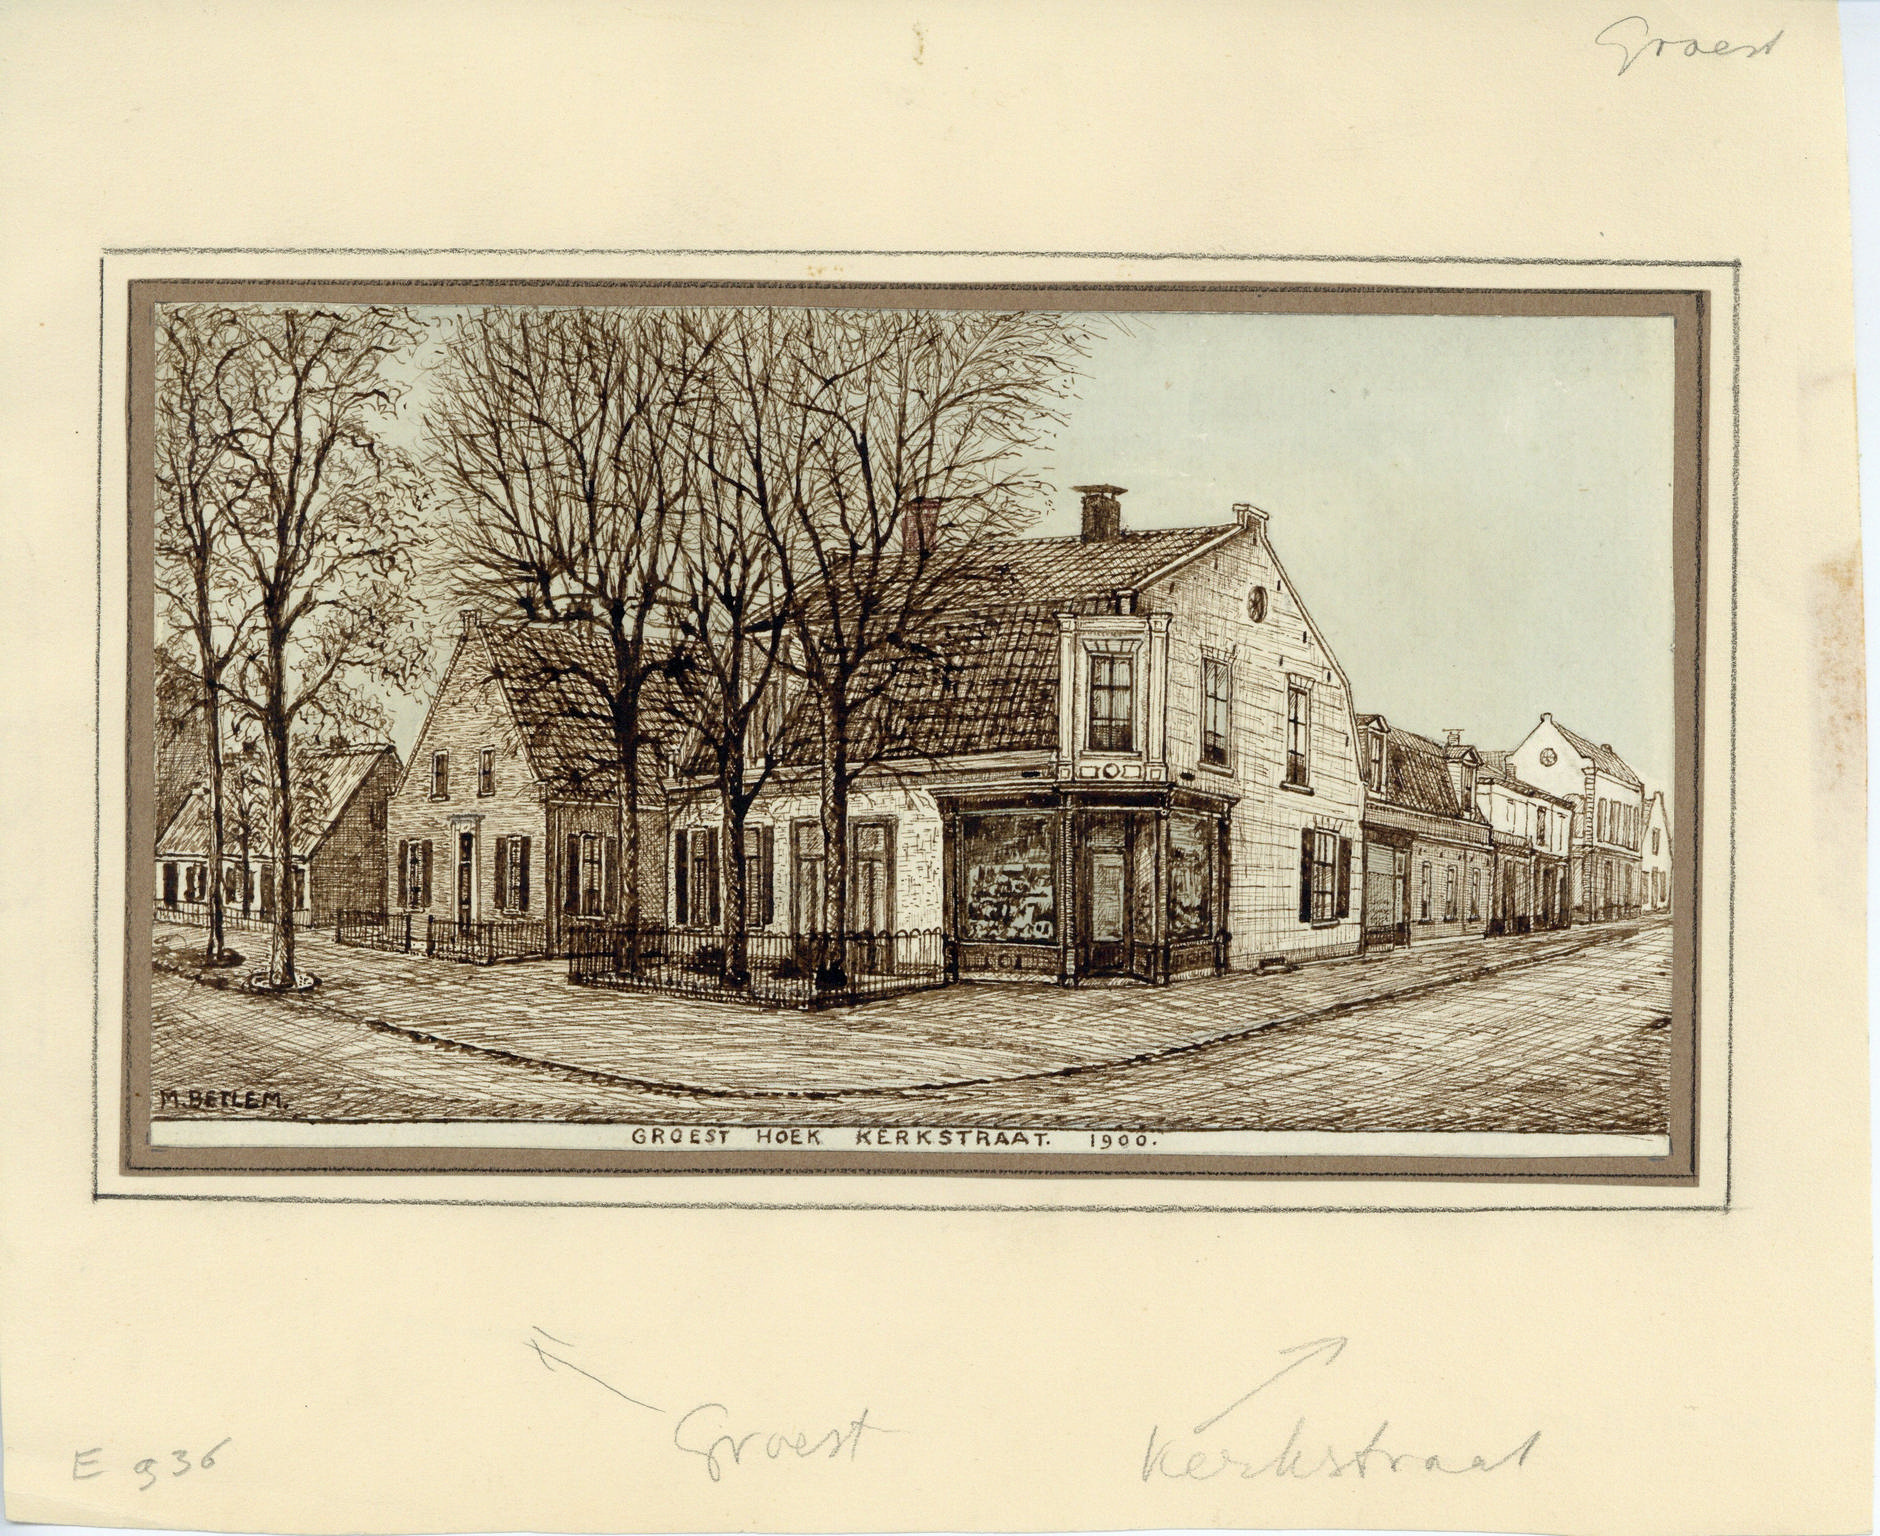 Groest
M. BETLEM.
GROEST HOEK KERKSTRAAT. 1900.
Groest
Kerkstraat
E 936